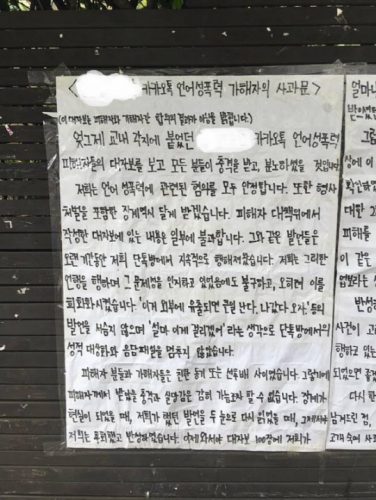 < 카카오톡 언어성폭력 가해자의 사과문 >
(이 대자보는 피해자와 가해자간 합의의 결과가 아님을 밝힙니다.)
엊그제 교내 각지에 붙었던 카카오톡 언어성폭력
피해자들의 대자보를 보고 모든 분들이 충격을 받고, 분노하셨을 것입니다.
저희는 언어 성폭력에 관련된 혐의를 모두 인정합니다. 또한 형사
처벌을 포함한 징계역시 달게 받겠습니다. 피해자 대책위에서
작성한 대자보에 있는 내용은 일부에 불과합니다. 그와 같은 발언들은
오랜기간동안 저희 단톡방에서 지속적으로 행해져왔습니다. 저희는 그러한
언행을 행하며 그 문제점을 인지하고 있었음에도 불구하고, 오히려 이를
희화화시켰습니다. '이거 외부에 유출되면 큰일 난다, 나갔다 오자.' 등의
발언을 서슴지 않으며 '설마 이게 걸리겠어' 라는 생각으로 단톡방에서의
성적 대상화와 음담패설을 멈추지 않았습니다.
피해자 분들과 가해자들은 친한 동기 또는 선후배 사이였습니다. 그렇기에
피해자께서 받았을 충격과 실망감은 감히 가늠조차 할 수 없습니다. 징계가
현실이 되었을 때, 저희가 했던 발언을 두 눈으로 다시 읽었을 때, 그제서야
저희는 후회했고 반성하였습니다. 이제와서야 대자보 100장에 저희가
얼마나
성에 이
대한 그
피해를
이 같은
반성하
사건이 고
행하고 있는
되었으면 좋겠
다시 한
남겨드린 점,
고개 숙여 사죄